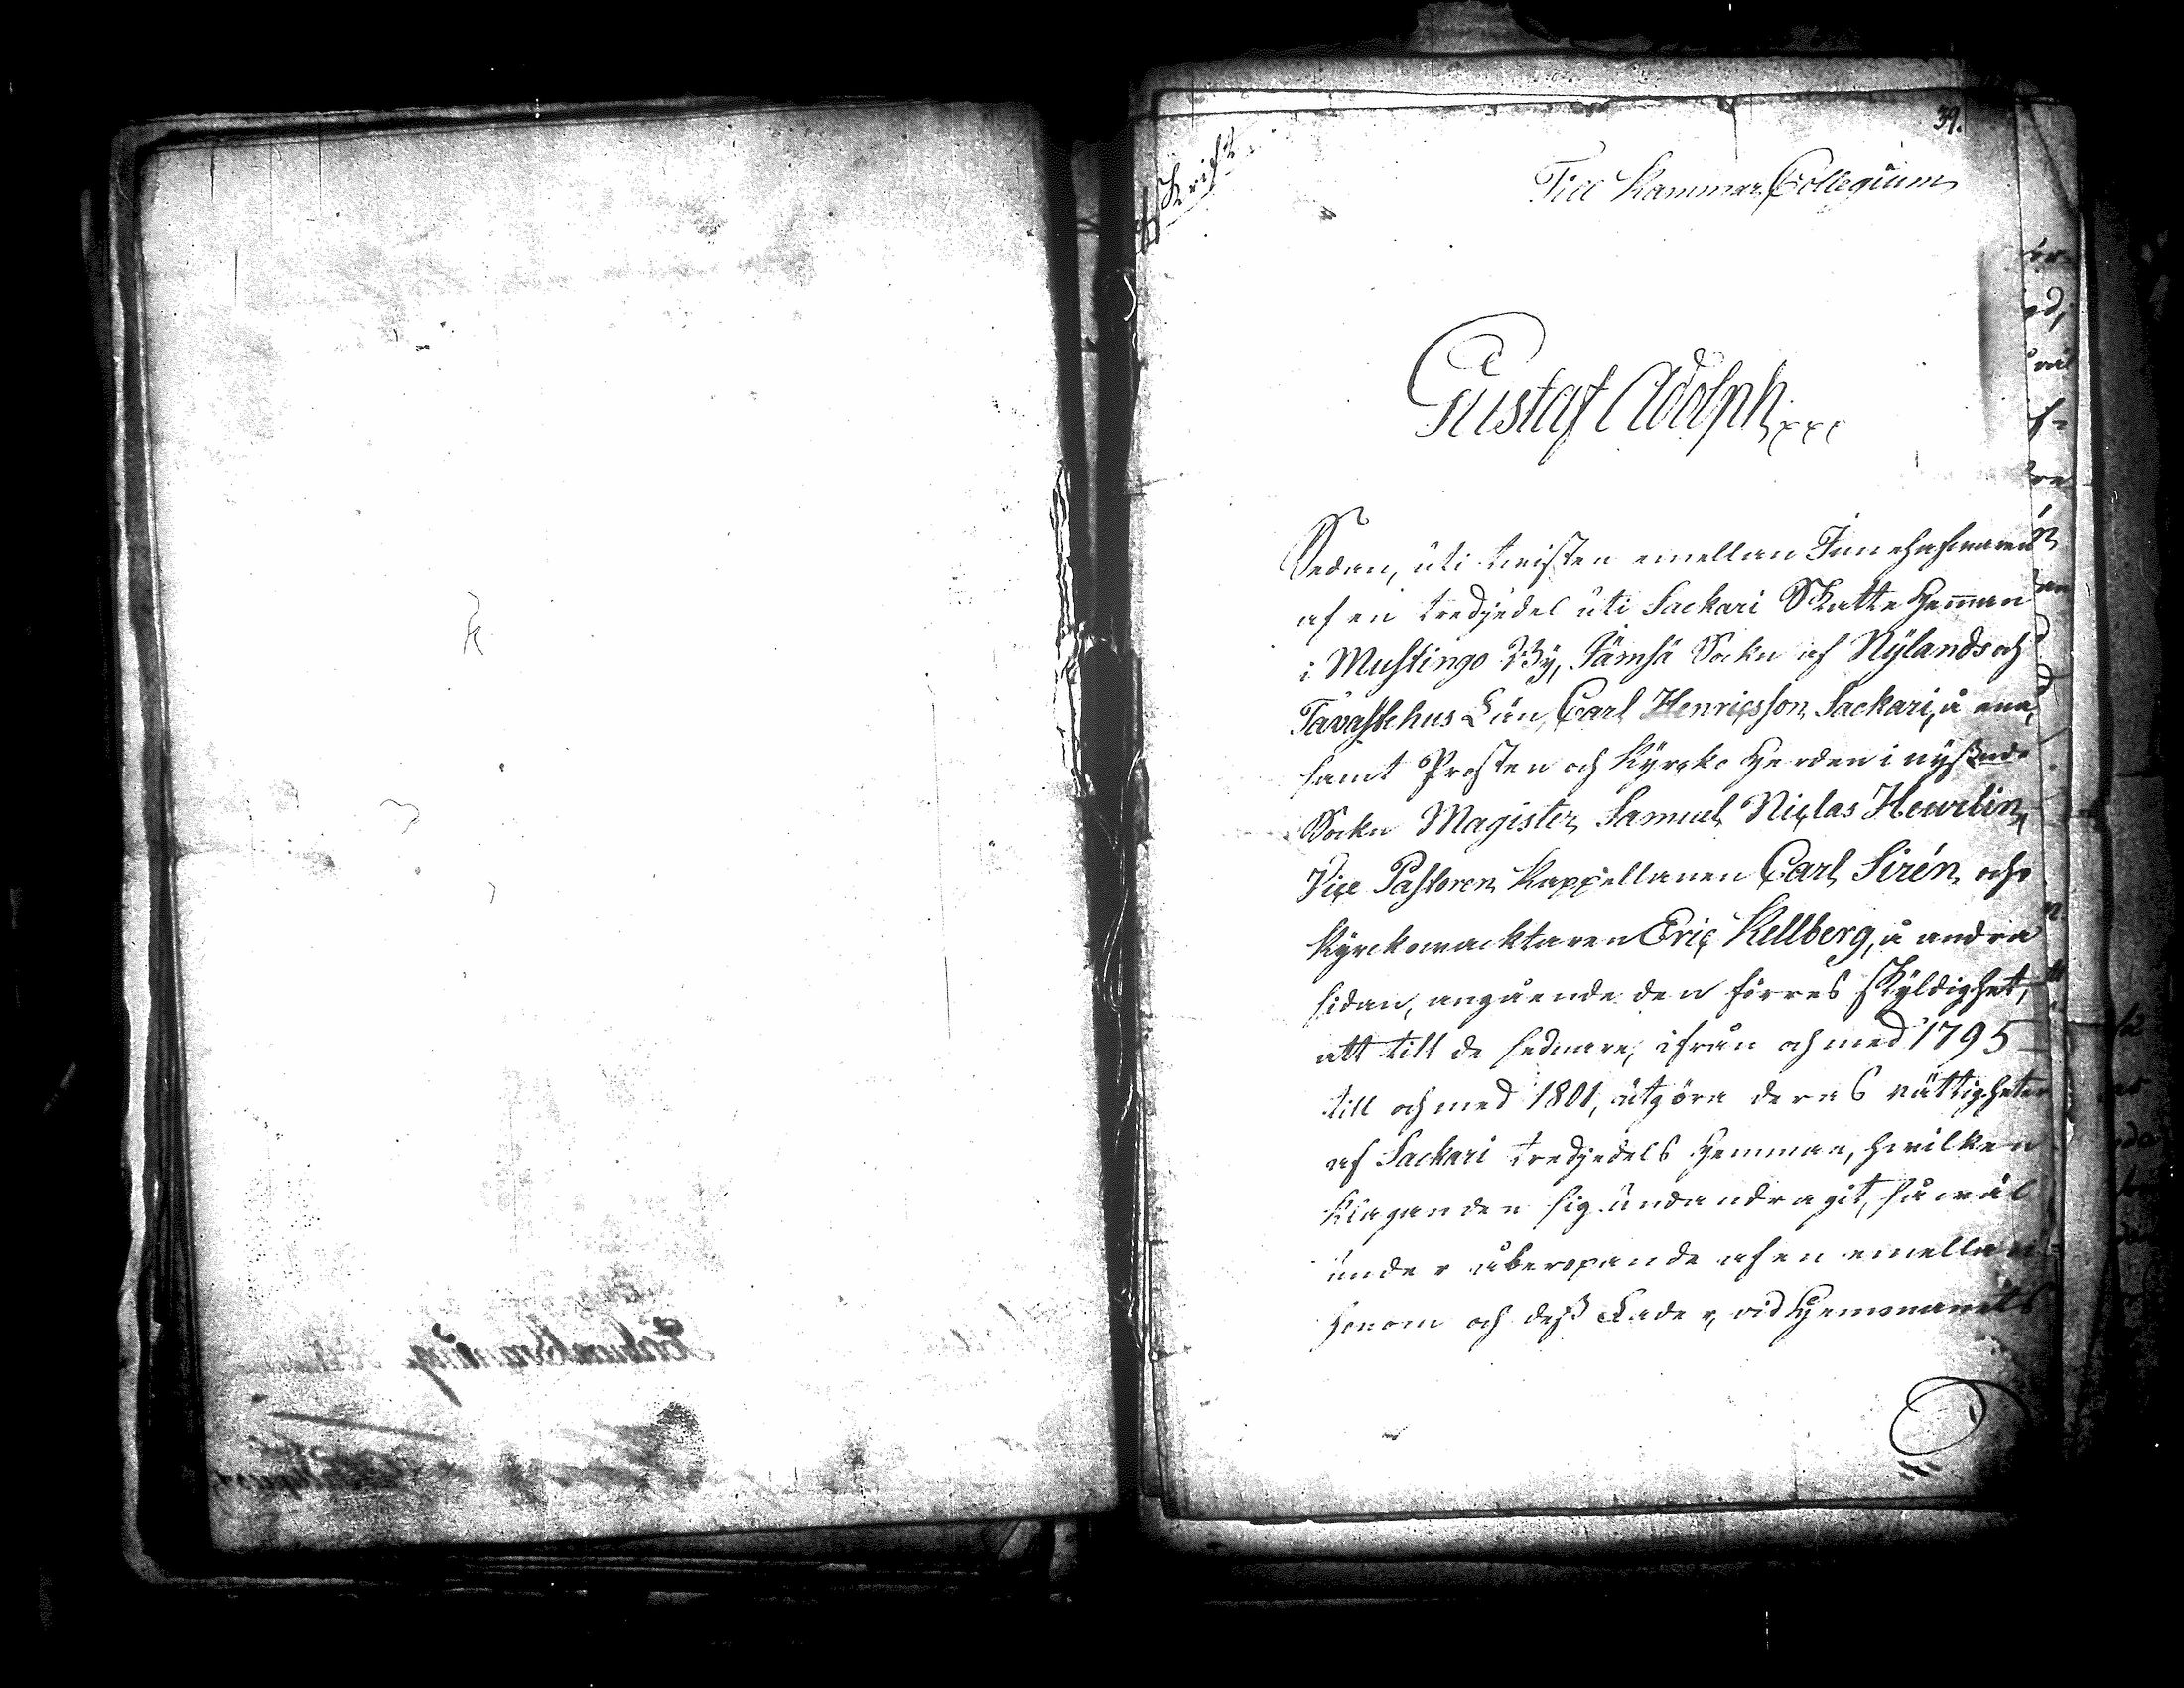 39.
Afskrift.
Till Kammar Collegium
Gustaf Adolph xxx
Sedan, uti twisten emellan Innehafwaren
af en tredjedel uti Sackari Skatte Hemman
i Muslingo By, Jämsä Sokn af Nylands och
Tavastehus Län, Carl Henricsson Sackari, å ena,
samt Prosten och Kyrko Herden i nyßnde
Sokn Magister Samuel Niclas Heurlin,
Vice Pastoren Kappellanen Carl Sirén och
Kyrckowacktaren Eric Kellberg, å andra
sidan, angående den förres skyldighet,
att till de sednare, ifrån och med 1795
till och med 1801, utgöra deras rättigheter
af Sackari tredjedels Hemman, hwilken
Klaganden sig undandragit, såwäl
under åberopande af en emellan
honom och deß Fader, vid Hemmanets